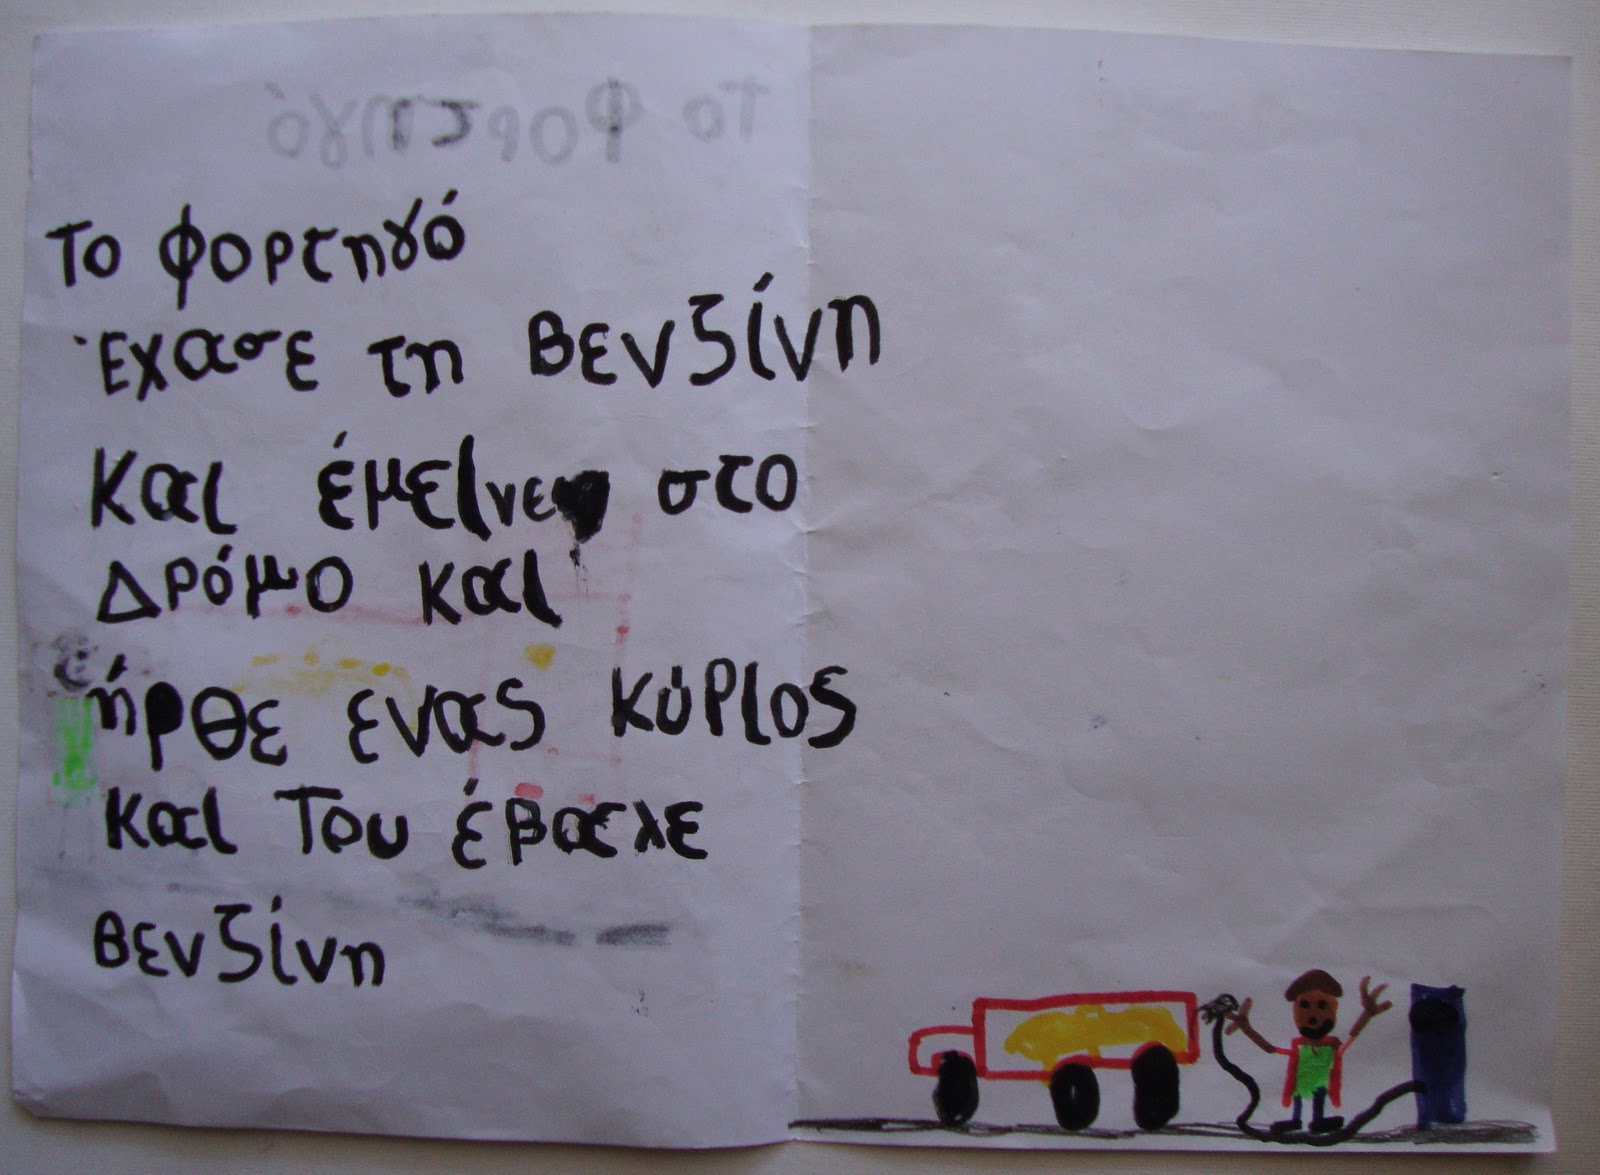 Το Φορτηγό
Το φορτηγό
Έχασε τη Βενζίνη
Και έμεινε στο
Δρόμο και
ήρθε ενας κύριος
και Του έβαελε
βενζίνη